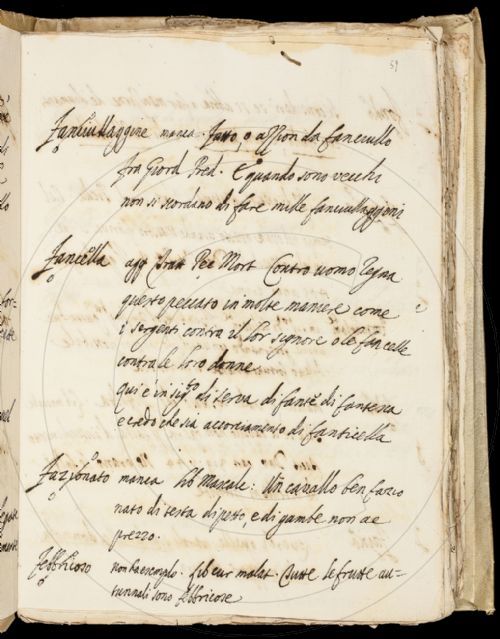 59
Fanciullaggine manca. Fatto, o azzion da fanciullo
fra Giord Pred. E quando sono vecchi
non si scordano di fare mille fanciullaggini
Fancella agg Tratt Pec Mort Contro uomo regna
questo peccato in molte maniere come
i sergenti contra il lor signore o le fancelle
contra le loro donne
qui è in sig.to di serva di fante di fantesca
e credo che sia accorciamento di fanticella
Fazionato manca lib Mascalc. Un cavallo ben fazio
nato di testa di petto, e di gambe non ae
prezzo.
Febbricoso non ha esempio. lib cur malat. Tutte le frutte au-
tunnali sono febbricose